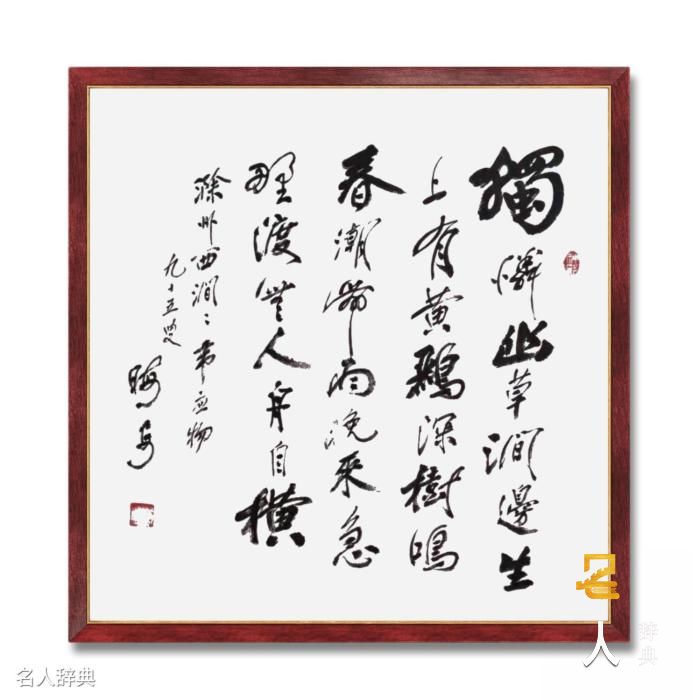 獨憐幽草澗邊生
上有黄鸝深樹鳴
春潮帶雨晚來急
野渡無人舟自橫
滁州西澗 韋应物
九十五叟
名人辞典
名人辞典